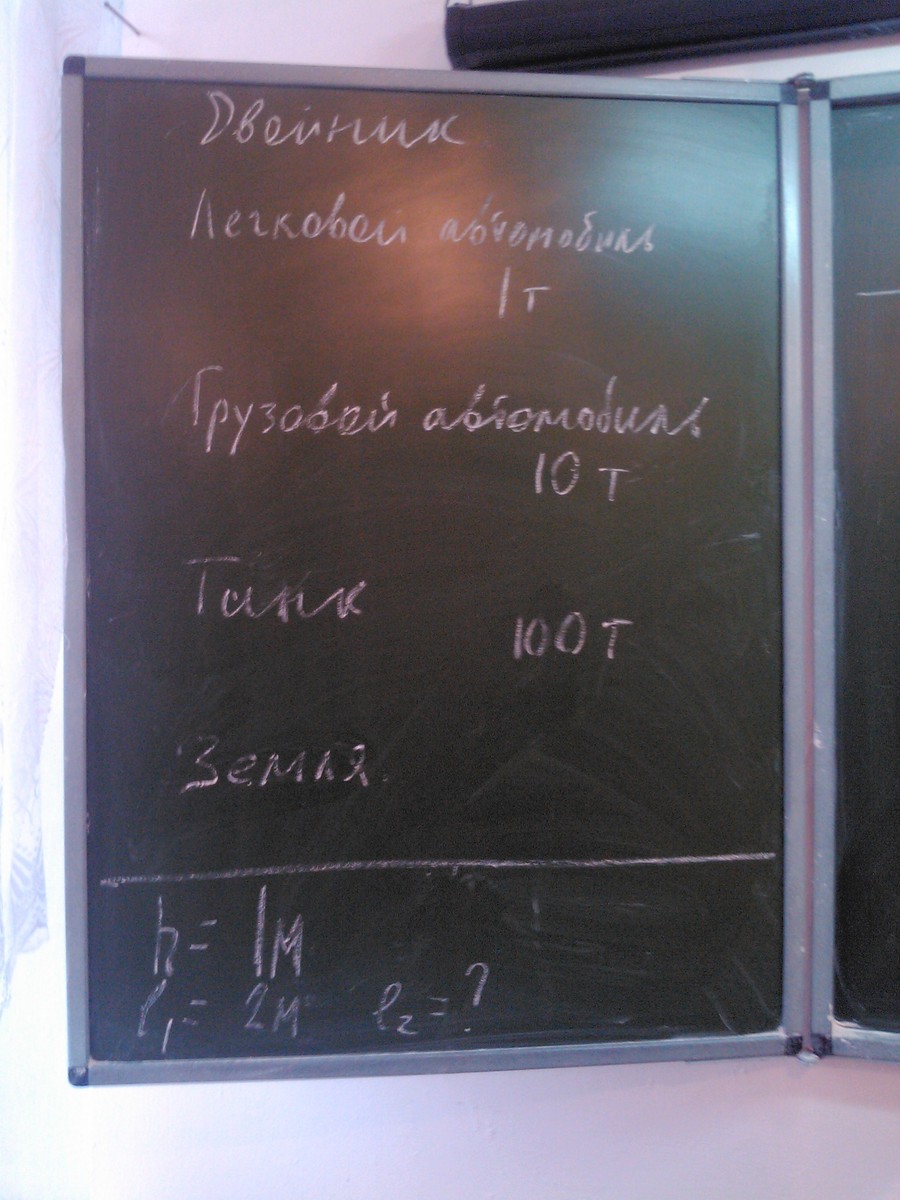 Двойник
Легковой автомобиль
1 т
Грузовой автомобиль
10 т
Танк
100 т
Земля
h = 1м
l₁ = 2м l₂ = ?